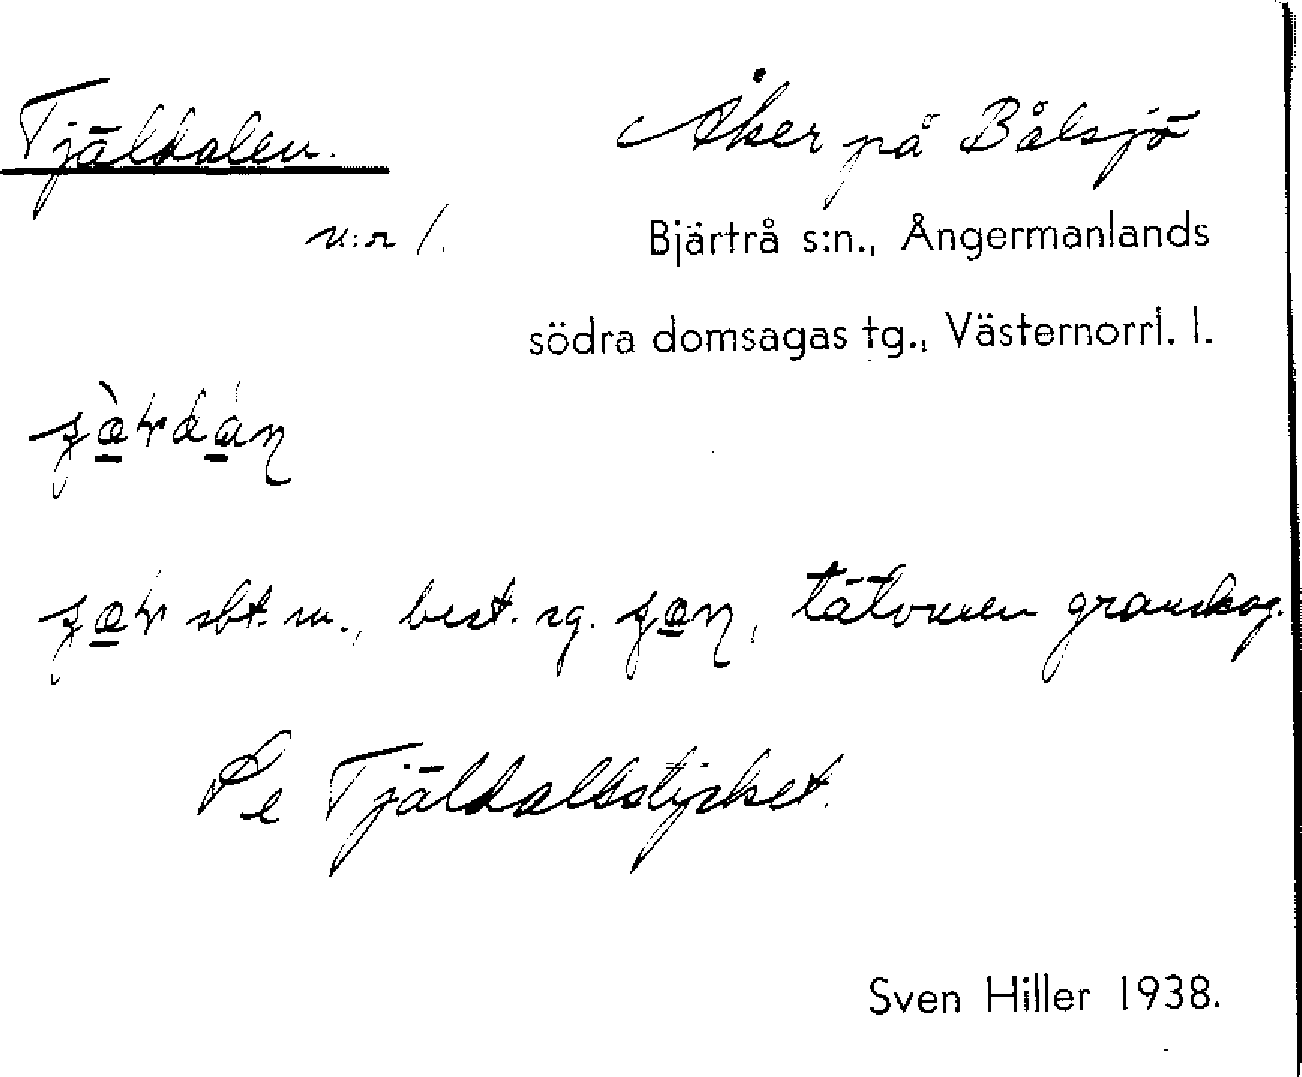 Tjäldalen. Åker på Bålsjö
n:r 1. Bjärtrå s:n., Ångermanlands
södra domsagas tg., Västernorrl. l.
sbt. m., best. sg. tätvuxen granskog.
Se Tjäldalsstycket.
Sven Hiller 1938.